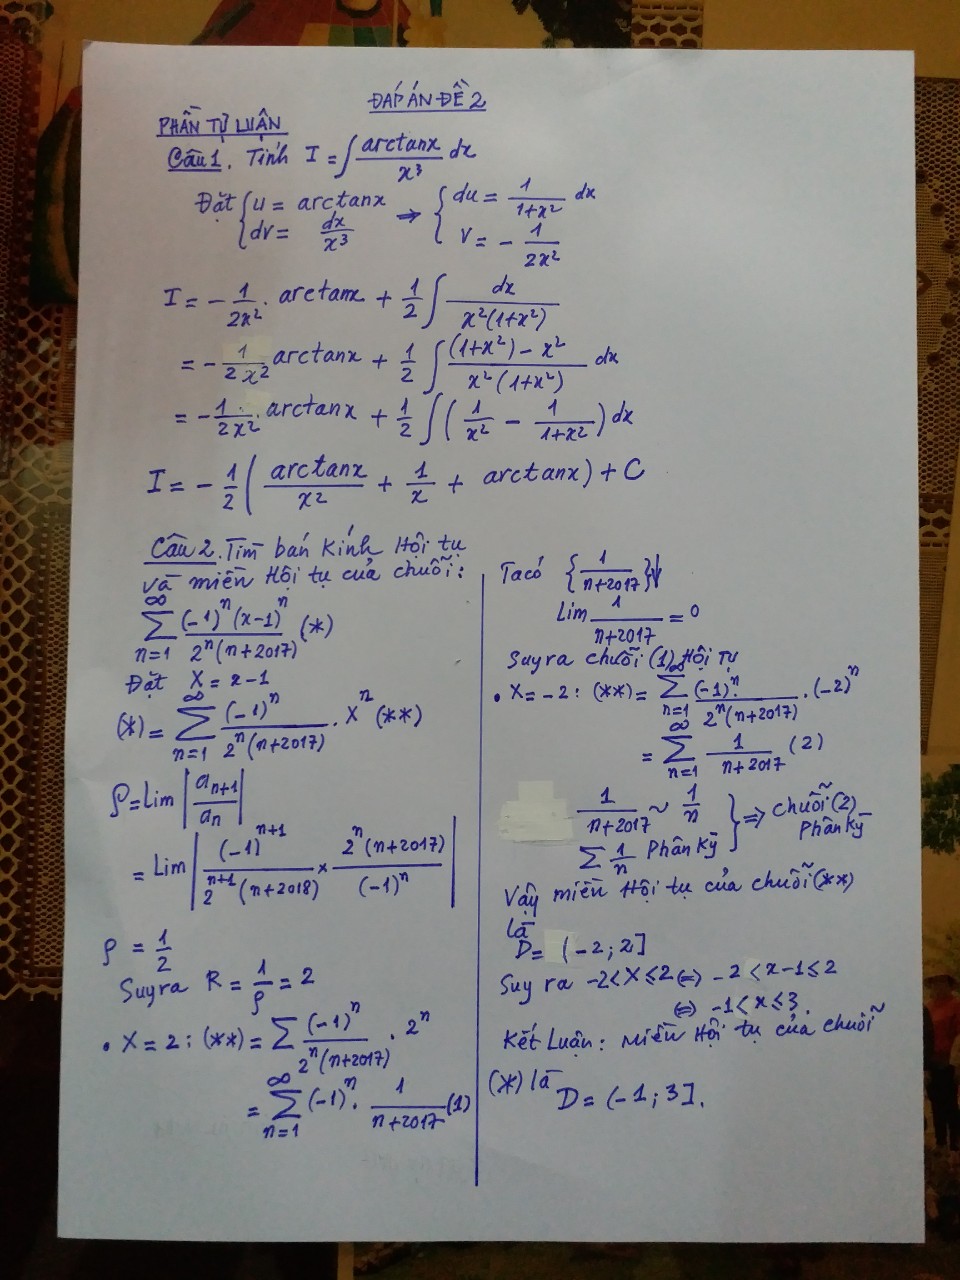 ĐÁP ÁN ĐỀ 2
PHẦN TỰ LUẬN
Câu 1. Tính I = ∫ arctanx / x³ dx
Đặt { u = arctanx ; dv = dx / x³ ⇒ { du = 1/(1+x²) dx ; v = - 1/(2x²)
I = - 1/(2x²) . arctanx + 1/2 ∫ dx / (x²(1+x²))
= - 1/(2x²) arctanx + 1/2 ∫ ((1+x²) - x²) / (x²(1+x²)) dx
= - 1/(2x²) . arctanx + 1/2 ∫ ( 1/x² - 1/(1+x²) ) dx
I = - 1/2 ( arctanx / x² + 1/x + arctanx ) + C
Câu 2. Tìm bán kính Hội tụ
và miền Hội tụ của chuỗi:
∑_{n=1}^{∞} (-1)ⁿ (x-1)ⁿ / (2ⁿ(n+2017)) (*)
Đặt X = x - 1
(*) = ∑_{n=1}^{∞} (-1)ⁿ / (2ⁿ(n+2017)) . Xⁿ (**)
ρ = Lim | aₙ₊₁ / aₙ |
= Lim | (-1)ⁿ⁺¹ / (2ⁿ⁺¹(n+2018)) × 2ⁿ(n+2017) / (-1)ⁿ |
ρ = 1/2
Suy ra R = 1/ρ = 2
• X = 2 : (**) = ∑ (-1)ⁿ / (2ⁿ(n+2017)) . 2ⁿ
= ∑_{n=1}^{∞} (-1)ⁿ . 1/(n+2017) (1)
Ta có { 1/(n+2017) }↓
Lim 1/(n+2017) = 0
Suy ra chuỗi (1) Hội Tụ
• X = -2 : (**) = ∑_{n=1}^{∞} (-1)ⁿ / (2ⁿ(n+2017)) . (-2)ⁿ
= ∑_{n=1}^{∞} 1/(n+2017) (2)
1/(n+2017) ~ 1/n } ⇒ chuỗi (2)
∑ 1/n Phân Kỳ Phân Kỳ
Vậy miền Hội tụ của chuỗi (**)
là
D = (-2 ; 2]
Suy ra -2 < X ≤ 2 ⇔ -2 < x-1 ≤ 2
⇔ -1 < x ≤ 3.
Kết Luận: Miền Hội tụ của chuỗi
(*) là D = (-1 ; 3].